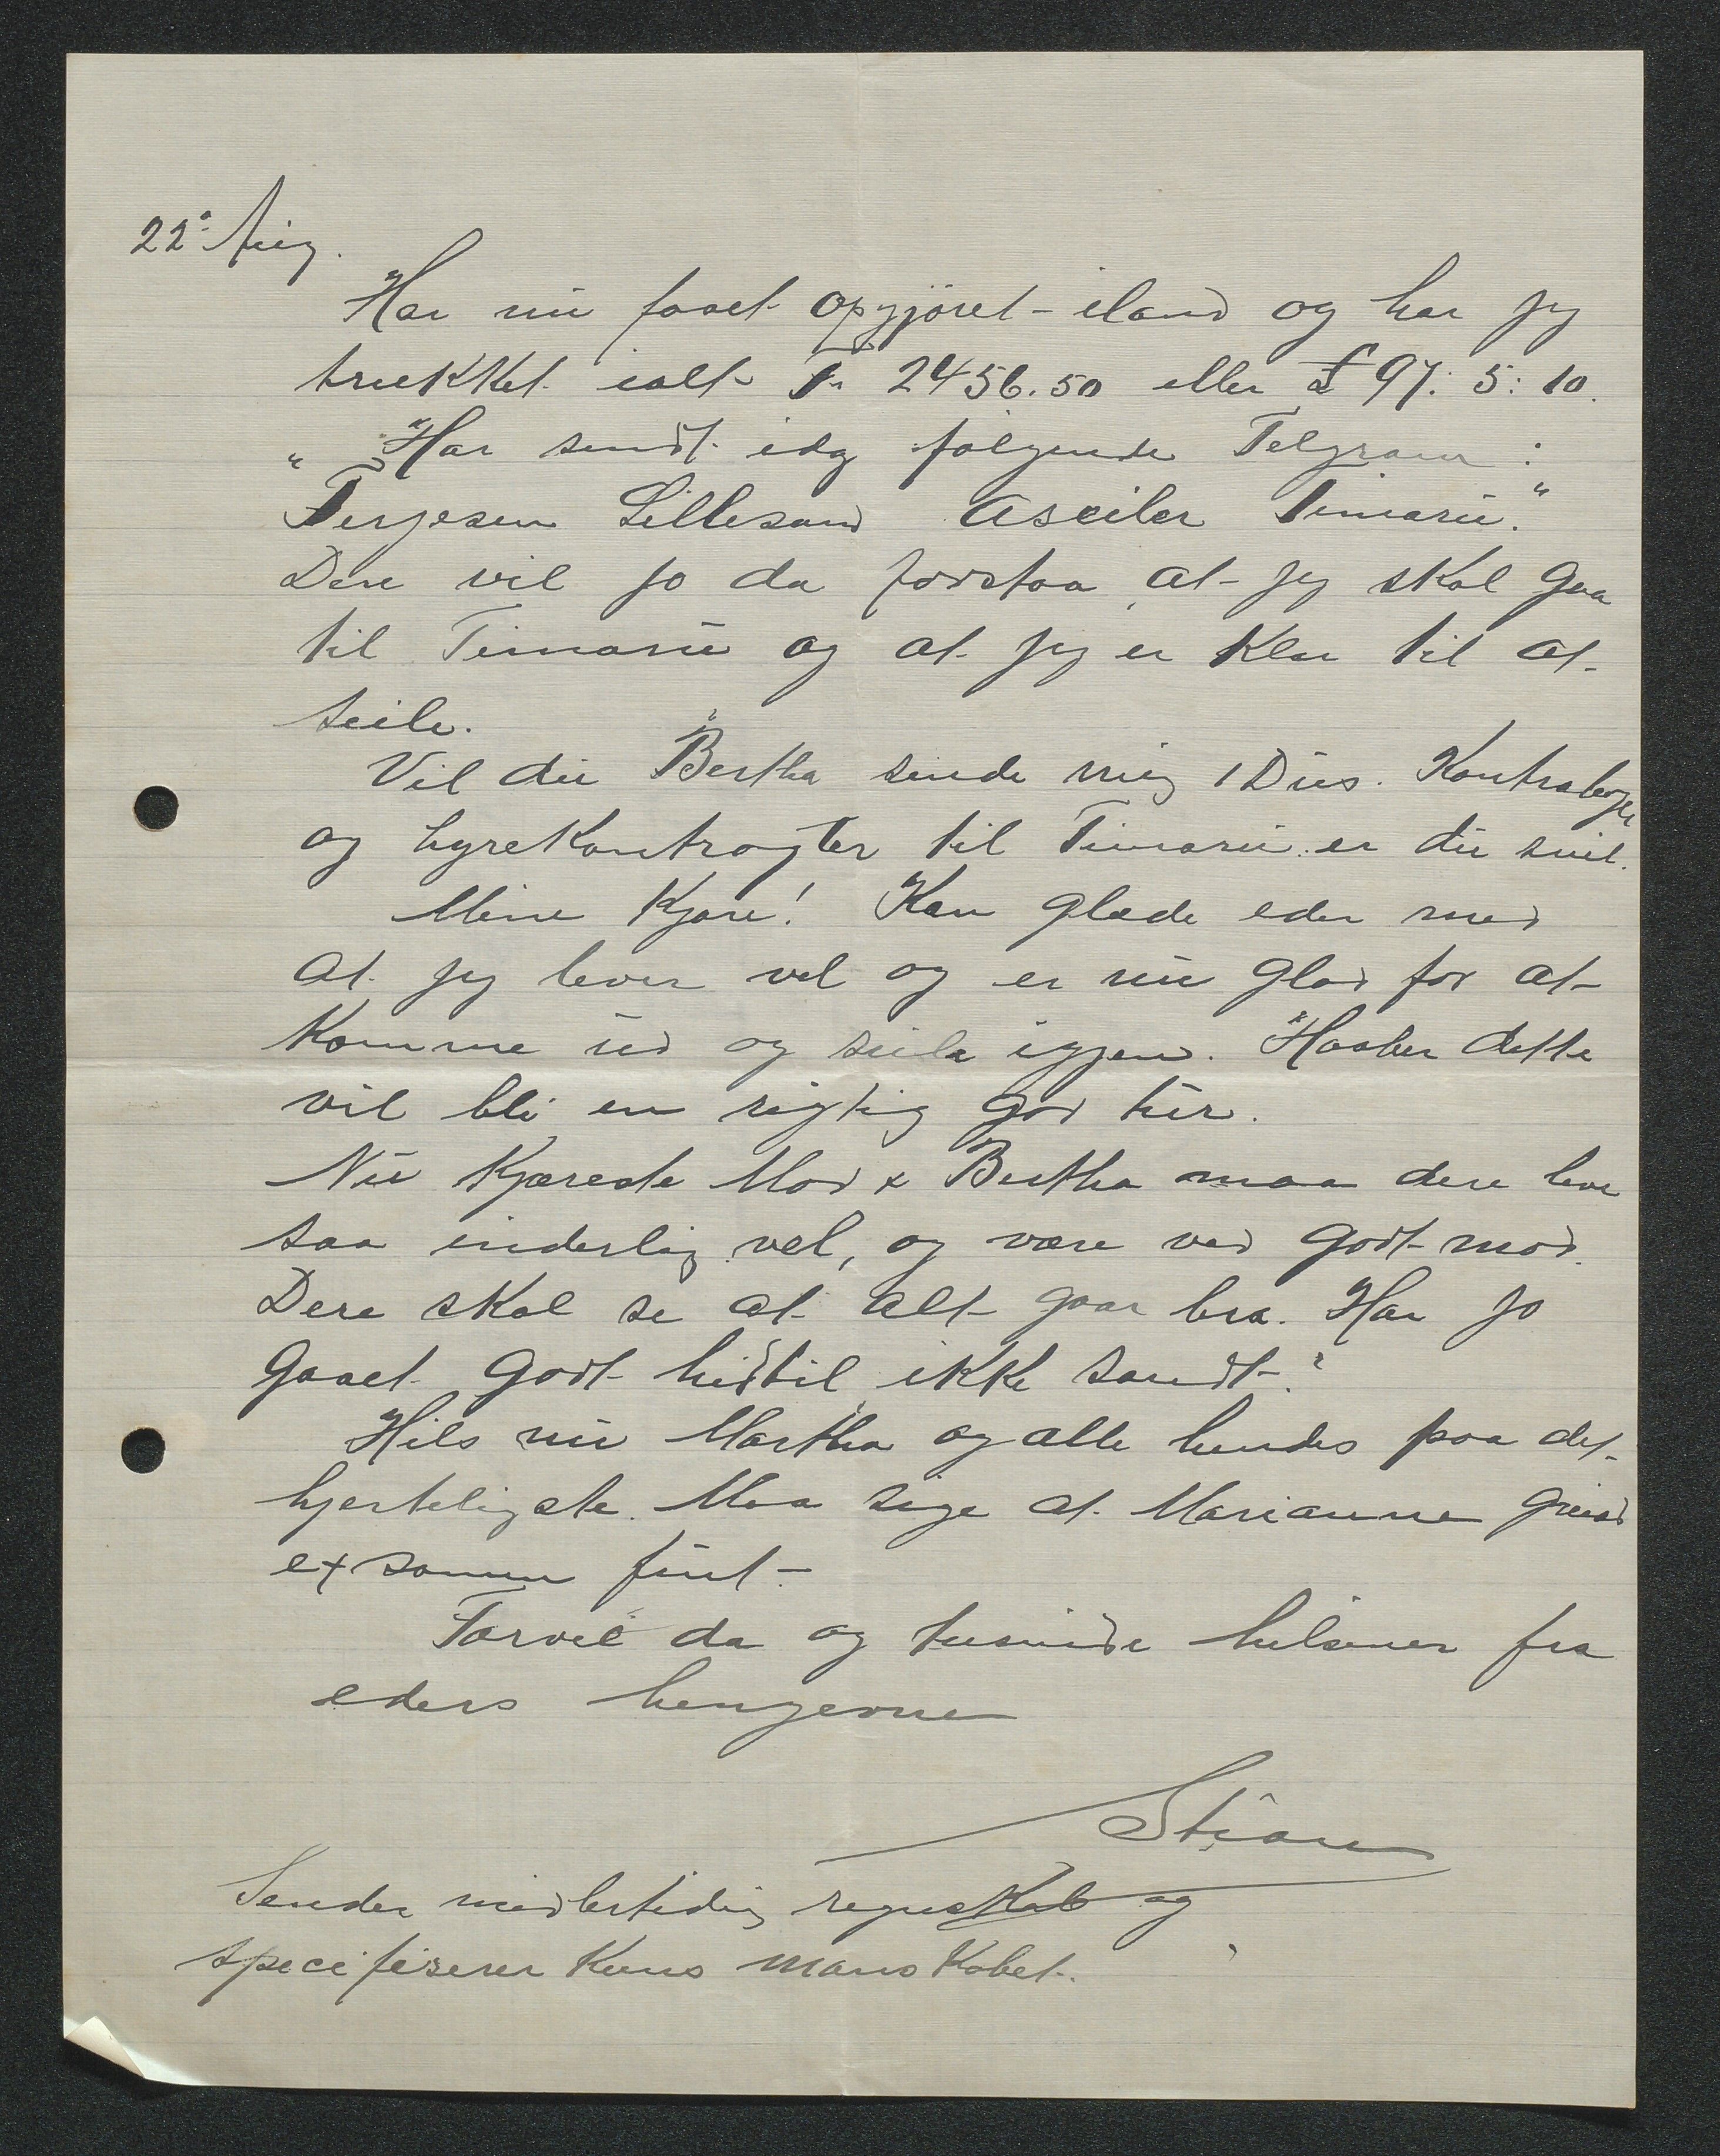 22° Aug.
Har nu faaet opgjöret iland og har jeg
trukket ialt Fr 2456.50 eller £ 97: 5: 10.
"Har sendt idg følgende Telgram:
Terjesen Lillesand Aseiler Timaru."
Dere vil jo da forstaa at jeg skal gaa
til Timaru og at jeg er klar til at
seile.
Vil du Bertha sende mig 1 Dus. Kontrabøger
og hyrekontragter til Timaru er du snil.
Mine Kjære! Kan glæde eder med
at jeg lever vel og er nu glad for at
komme ud og seila igjen. Haaber dette
vil bli en rigtig god tur.
Nu Kjæreste Mor & Bertha maa dere leve
saa inderlig vel, og være ved godt mod.
Dere skal se at alt gaar bra. Har jo
gaaet godt hidtil ikke sandt?
Hils nu Martha og alle hendes paa det
hjerteligste. Maa sige at Marianne
exsamen fint.
Farvel da og tusinde hilsener fra
eders hengivne
Stian
Sender midlertidig regnskab og
specifiserer kuns manskabet.